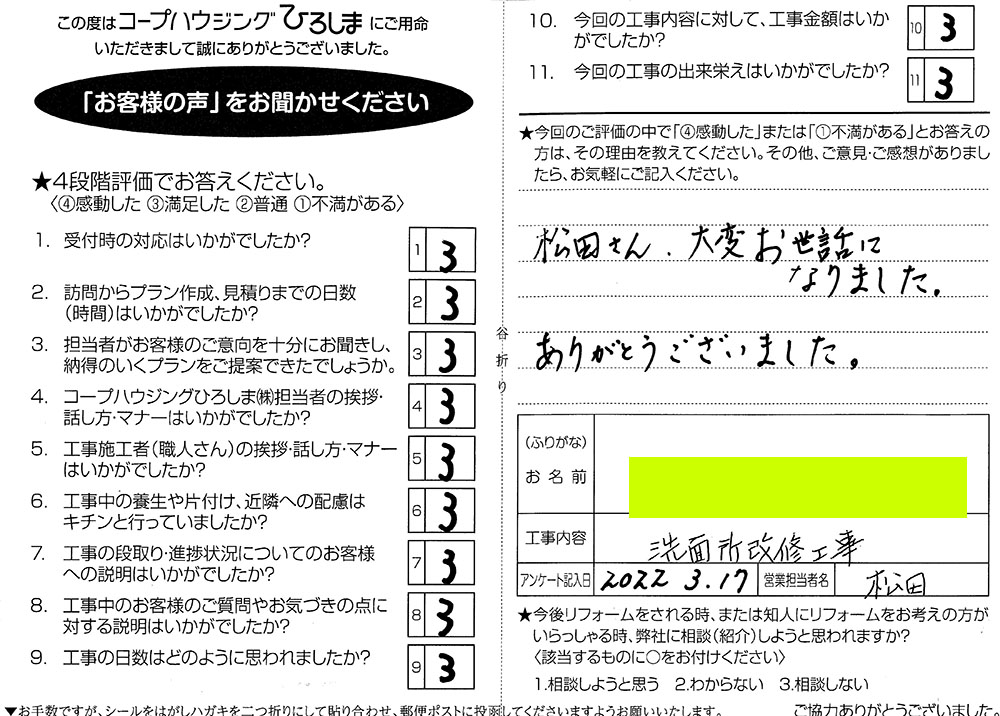 この度はコープハウジングひろしまにご用命
いただきまして誠にありがとうございました。
「お客様の声」をお聞かせください
★4段階評価でお答えください。
〈④感動した ③満足した ②普通 ①不満がある〉
1. 受付時の対応はいかがでしたか?
1 3
2. 訪問からプラン作成、見積りまでの日数
（時間）はいかがでしたか?
2 3
3. 担当者がお客様のご意向を十分にお聞きし、
納得のいくプランをご提案できたでしょうか。
3 3
4. コープハウジングひろしま㈱担当者の挨拶・
話し方・マナーはいかがでしたか?
4 3
5. 工事施工者（職人さん）の挨拶・話し方・マナー
はいかがでしたか?
5 3
6. 工事中の養生や片付け、近隣への配慮は
キチンと行っていましたか?
6 3
7. 工事の段取り・進捗状況についてのお客様
への説明はいかがでしたか?
7 3
8. 工事中のお客様のご質問やお気づきの点に
対する説明はいかがでしたか?
8 3
9. 工事の日数はどのように思われましたか?
9 3
▼お手数ですが、シールをはがしハガキを二つ折りにして貼り合わせ、郵便ポストに投函してくださいますようお願いいたします。
谷折り
10. 今回の工事内容に対して、工事金額はいか
がでしたか?
10 3
11. 今回の工事の出来栄えはいかがでしたか?
11 3
★今回のご評価の中で「④感動した」または「①不満がある」とお答えの
方は、その理由を教えてください。その他、ご意見・ご感想がありまし
たら、お気軽にご記入ください。
松田さん、大変お世話に
なりました。
ありがとうございました。
（ふりがな）
お名前
工事内容 洗面所改修工事
アンケート記入日 2022 3.17 営業担当者名 松田
★今後リフォームをされる時、または知人にリフォームをお考えの方が
いらっしゃる時、弊社に相談（紹介）しようと思われますか?
〈該当するものに○をお付けください〉
1.相談しようと思う 2.わからない 3.相談しない
ご協力ありがとうございました。